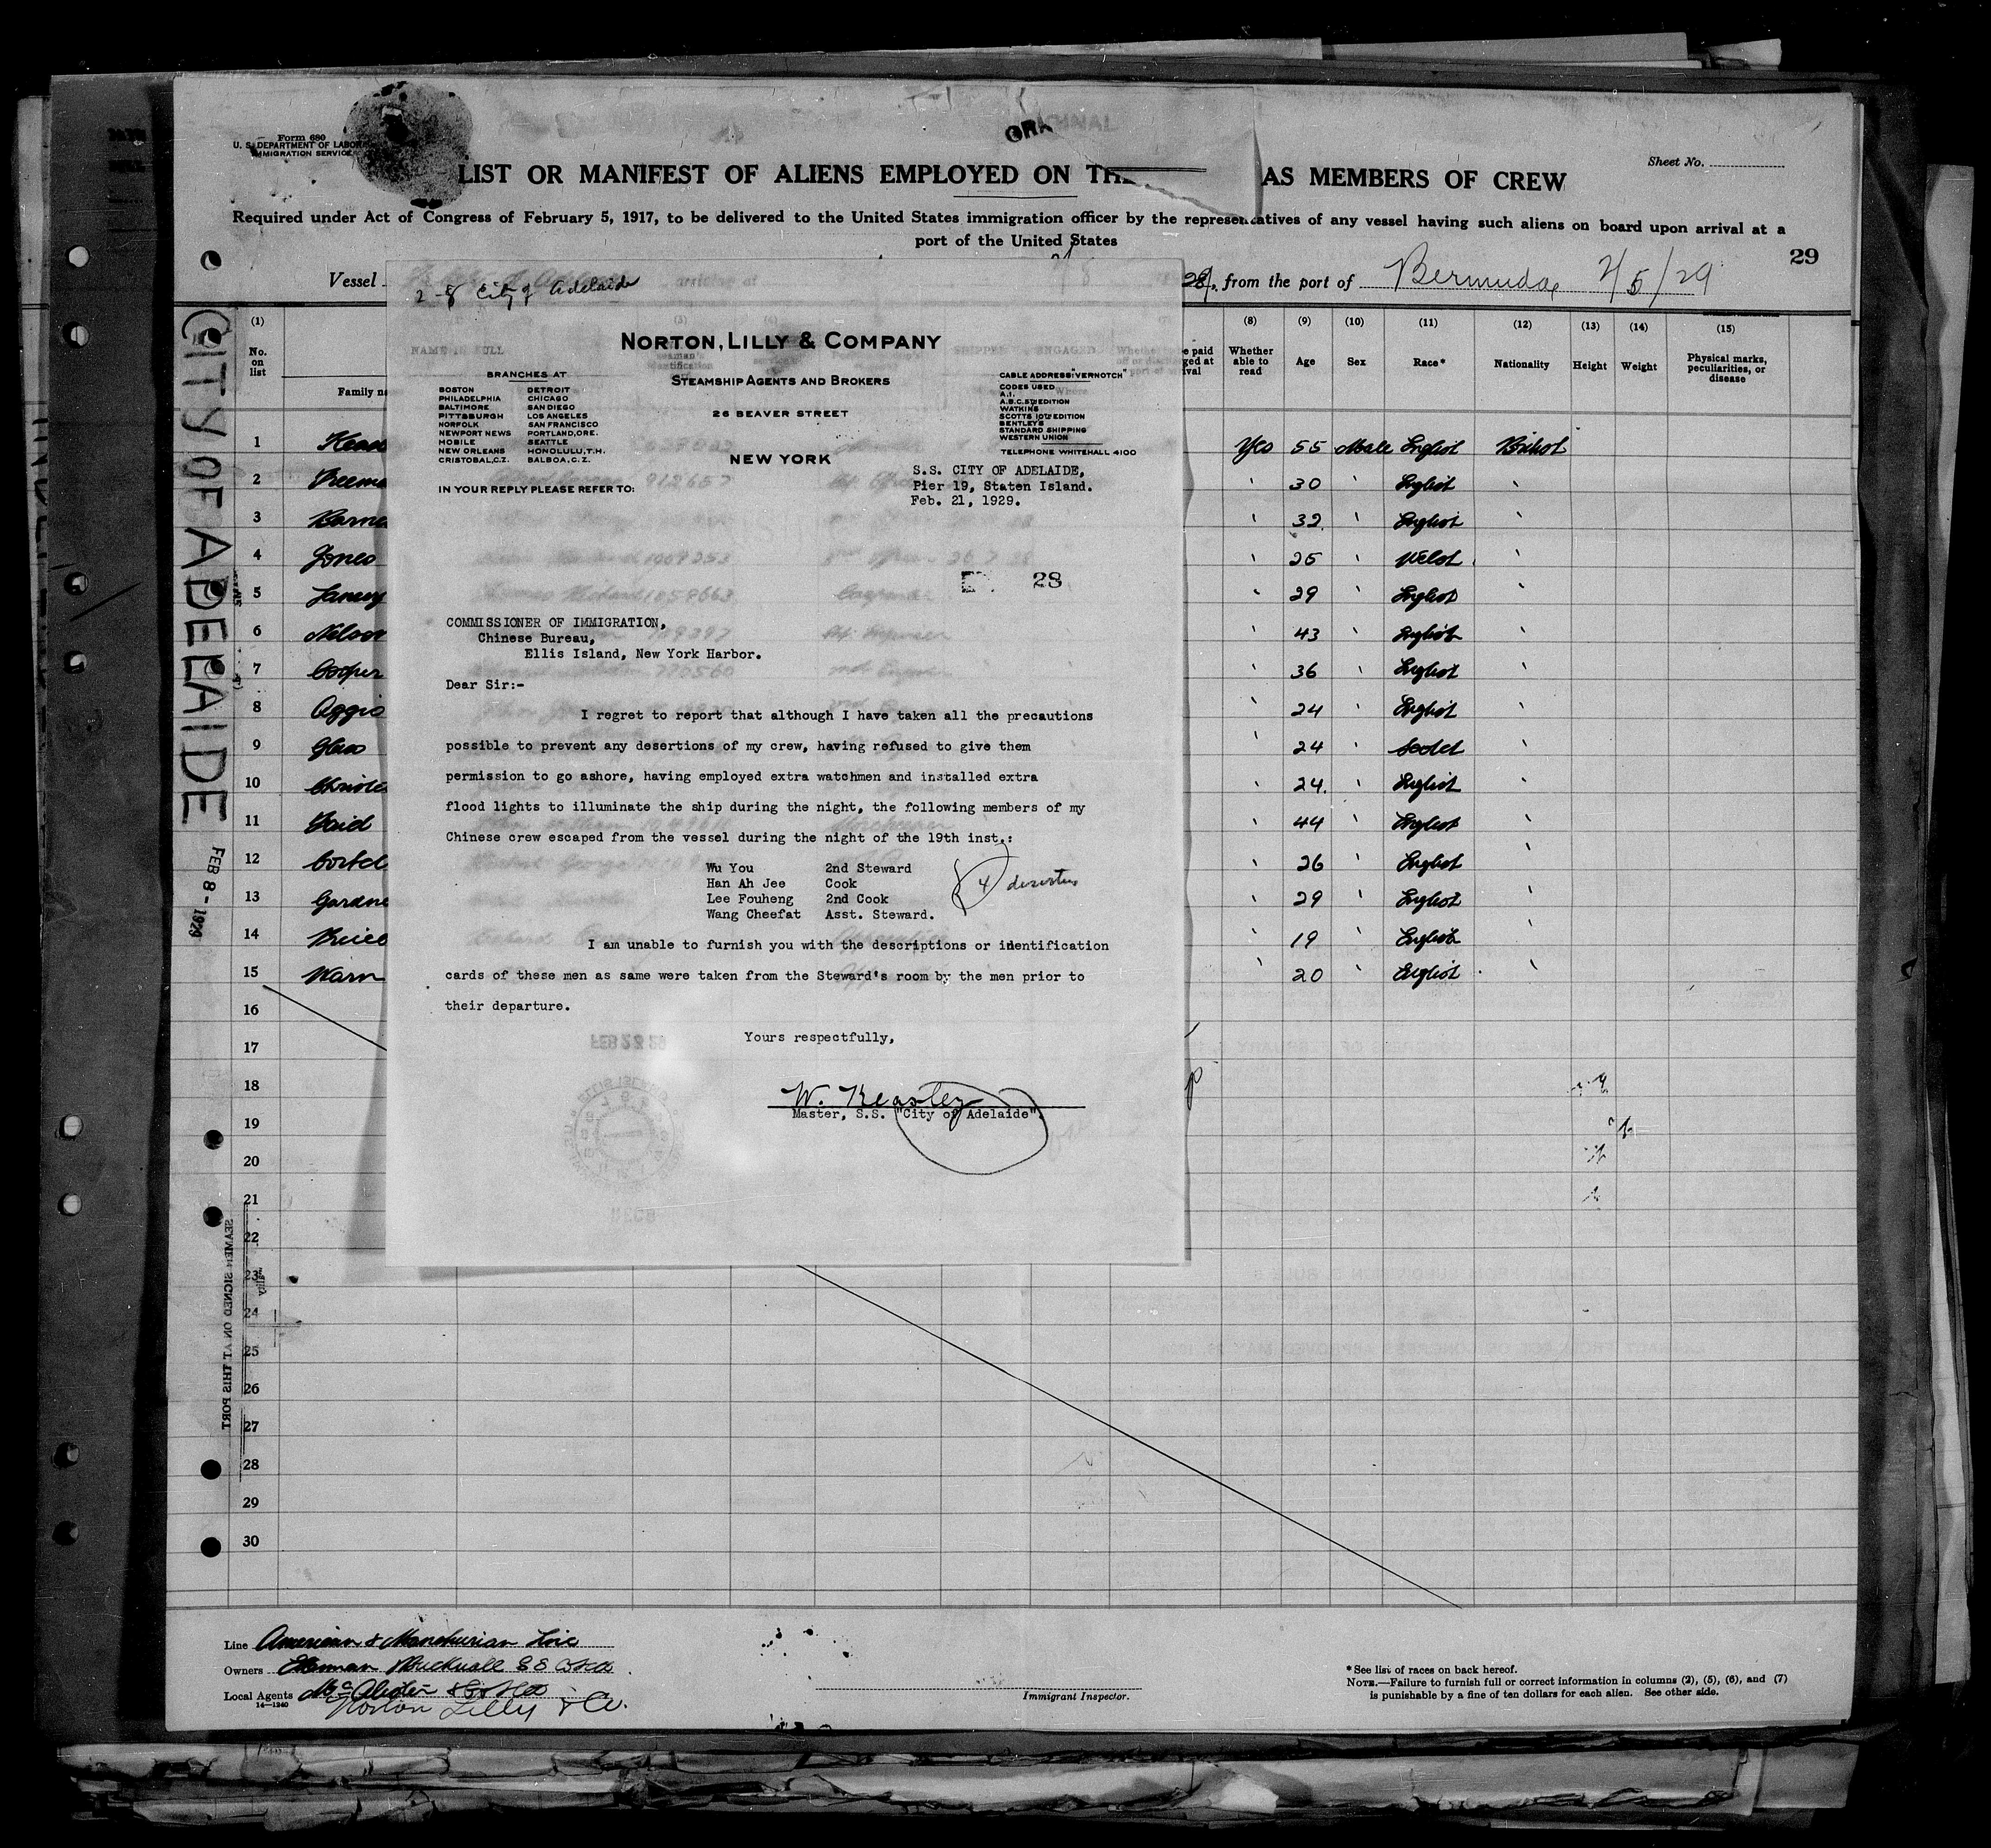 Form 680
U. S. DEPARTMENT OF LABOR
IMMIGRATION SERVICE
Sheet No.
LIST OR MANIFEST OF ALIENS EMPLOYED ON THE AS MEMBERS OF CREW
Required under Act of Congress of February 5, 1917, to be delivered to the United States immigration officer by the representatives of any vessel having such aliens on board upon arrival at a
port of the United States
29
Vessel
, from the port of Bermuda, 2/5/29
CITY OF ADELAIDE
FEB 8 - 1929
2-8 City of Adelaide
NORTON, LILLY & COMPANY
STEAMSHIP AGENTS AND BROKERS
26 BEAVER STREET
NEW YORK
BRANCHES AT
BOSTON DETROIT
PHILADELPHIA CHICAGO
BALTIMORE SAN DIEGO
PITTSBURGH LOS ANGELES
NORFOLK SAN FRANCISCO
NEWPORT NEWS PORTLAND, ORE.
MOBILE SEATTLE
NEW ORLEANS HONOLULU, T.H.
CRISTOBAL, C.Z. BALBOA, C.Z.
IN YOUR REPLY PLEASE REFER TO:
CABLE ADDRESS "VERNOTCH"
CODES USED
A.I.
A.B.C. 5TH EDITION
WATKINS
SCOTTS 10TH EDITION
BENTLEY'S
STANDARD SHIPPING
WESTERN UNION
TELEPHONE WHITEHALL 4100
S.S. CITY OF ADELAIDE,
Pier 19, Staten Island.
Feb. 21, 1929.
28
COMMISSIONER OF IMMIGRATION,
Chinese Bureau,
Ellis Island, New York Harbor.
Dear Sir:-
I regret to report that although I have taken all the precautions
possible to prevent any desertions of my crew, having refused to give them
permission to go ashore, having employed extra watchmen and installed extra
flood lights to illuminate the ship during the night, the following members of my
Chinese crew escaped from the vessel during the night of the 19th inst.:
Wu You 2nd Steward
Han Ah Jee Cook
Lee Fouheng 2nd Cook
Wang Cheefat Asst. Steward.
4 deserters
I am unable to furnish you with the descriptions or identification
cards of these men as same were taken from the Steward's room by the men prior to
their departure.
Yours respectfully,
W. Keasley
Master, S.S. "City of Adelaide".
(1) (8) (9) (10) (11) (12) (13) (14) (15)
No. on list
Whether able to read Age Sex Race* Nationality Height Weight Physical marks, peculiarities, or disease
1 Yes 55 Male English British
2 30 English
3 32 English
4 Jones 25 Welsh
5 29 English
6 Nelson 43 English
7 Cooper 36 English
8 Aggio 24 English
9 Glass 24 Scotch
10 24 English
11 44 English
12 26 English
13 Gardne 29 English
14 19 English
15 Warn 20 English
16
17
18
19
20
21
22
23
24
25
26
27
28
29
30
SEAMEN SIGNED ON AT THIS PORT
Line American & Manchurian Line
Owners Ellerman Bucknall S S Co Ltd
Local Agents
14-1240
Norton Lilly & Co.
Immigrant Inspector.
* See list of races on back hereof.
NOTE.—Failure to furnish full or correct information in columns (2), (5), (6), and (7)
is punishable by a fine of ten dollars for each alien. See other side.